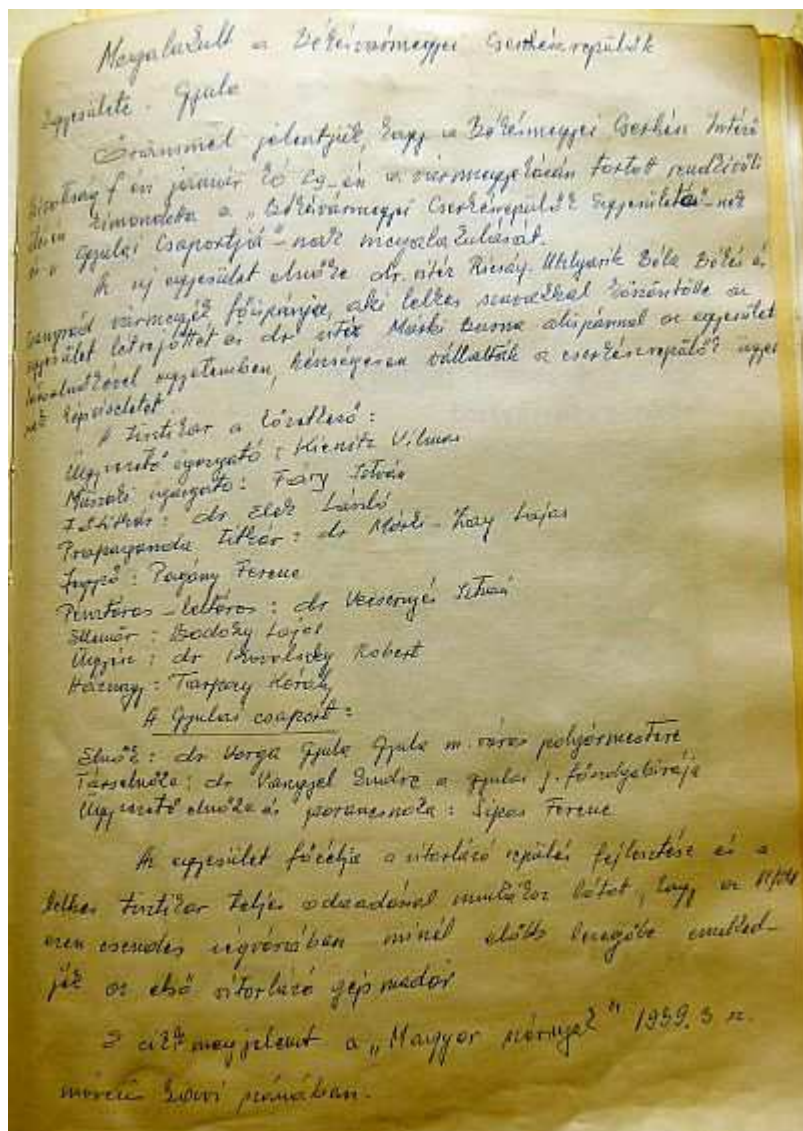 Megalakult a Békésvármegyei Cserkészrepülők
Egyesülete. Gyula
Örömmel jelentjük, hogy a Békésmegyei Cserkész Intéző
Bizottság f. én január hó 29-én a vármegyeházán tartott rendkívüli
kimondotta a „Békésvármegyei Cserkészrepülők Egyesületé"-nek
és a Gyulai Csaportjá"-nak megalakulását.
Az új egyesület elnöke dr. vitéz Ricsóy-Uhlyarik Béla Békés és
Csongrád vármegyék főispánja, aki lelkes szavakkal köszöntötte az
egyesület létrejöttét és dr vitéz Márki Barna alispánnal az egyesület
társelnökével egyetemben, készségesen vállalták a cserkészrepülők ügyei
nek képviseletét.
A tisztikar a következő:
Ügyvezető igazgató: Kienitz Vilmos
Műszaki igazgató: Fáry István
Főtitkár: dr Elek László
Propaganda titkár: dr Márki-Zay Lajos
Jegyző: Pogány Ferenc
Pénztáros-leltáros: dr Vecsernyés István
Ellenőr: Lajos
Ügyész: dr Kovalszky Robert
Háznagy: Tarpay Károly
A Gyulai csaport:
Elnök: dr Varga Gyula Gyula m. város polgármestere
Társelnöke: dr Vangyel Endre a gyulai j. főszolgabírája
Ügyvezető elnöke és parancsnoka: Sipos Ferenc
Az egyesület főcélja a vitorlázó repülés fejlesztése és a
lelkes tisztikar teljes odaadással munkához látott, hogy az Alföld
ezen csendes végvárában minél előbb levegőbe emelked-
jék az első vitorlázó gépmadár
E cikk megjelent a „Magyar szárnyak" 1939. 3 sz.
március havi számában.